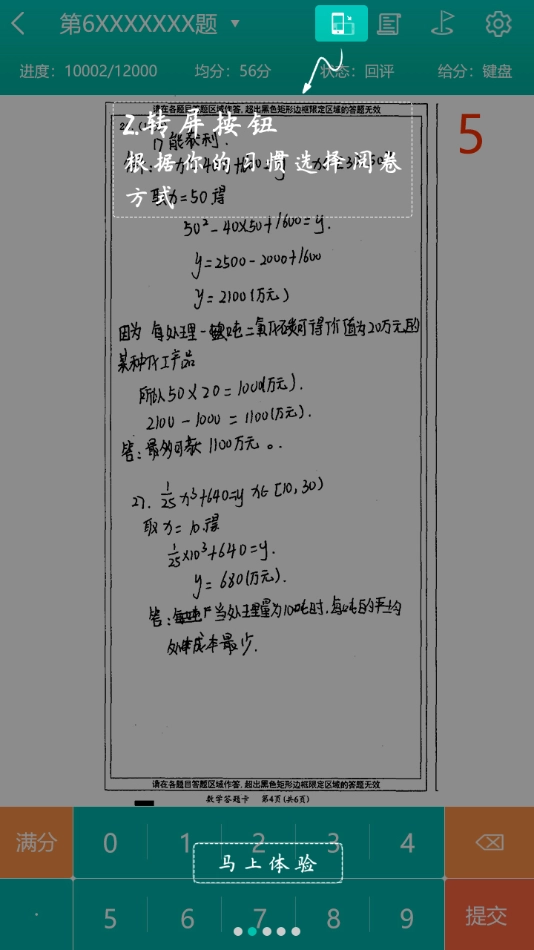 第6XXXXXXX题
进度：10002/12000 均分：56分 状态：回评 给分：键盘
请在各题目答题区域作答，超出黑色矩形边框限定区域的答题无效
5
2.转屏按钮
根据你的习惯选择阅卷
方式
取x=50得
50²-40×50+1600=y.
y=2500-2000+1600
y=2100(万元)
因为 每处理一吨二氧化碳可得价值为20万元的
某种化工产品
所以50×20=1000(万元).
2100-1000=1100(万元).
答:最多可获 1100万元。
27. 1/25 x³+640=y x∈[10,30)
取x=10得
1/25×10³+640=y.
y=680(万元).
答: 当处理量为10吨时,每吨的平均
处理成本最少.
请在各题目答题区域作答，超出黑色矩形边框限定区域的答题无效
数学答题卡 第4页(共6页)
满分 0 1 2 3 4
马上体验
· 5 6 7 8 9 提交